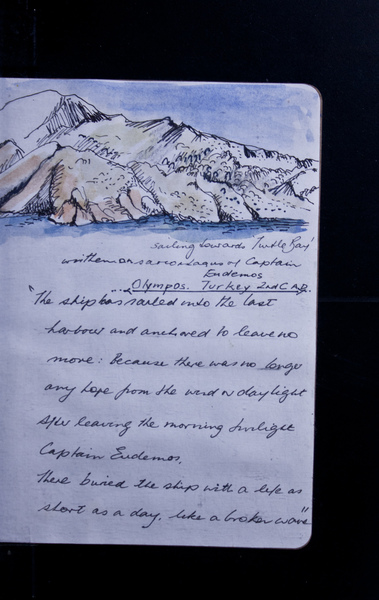 sailing towards 'Turtle Bay'
written on sarcophagus of Captain
Endemos
... Olympos. Turkey 2nd C A.D.
"The ship has sailed into the last
harbour and anchored to leave no
more: Because there was no longer
any hope from the wind or daylight
After leaving the morning twilight
Captain Eudemos,
There buried the ship with a life as
short as a day, like a broken wave"